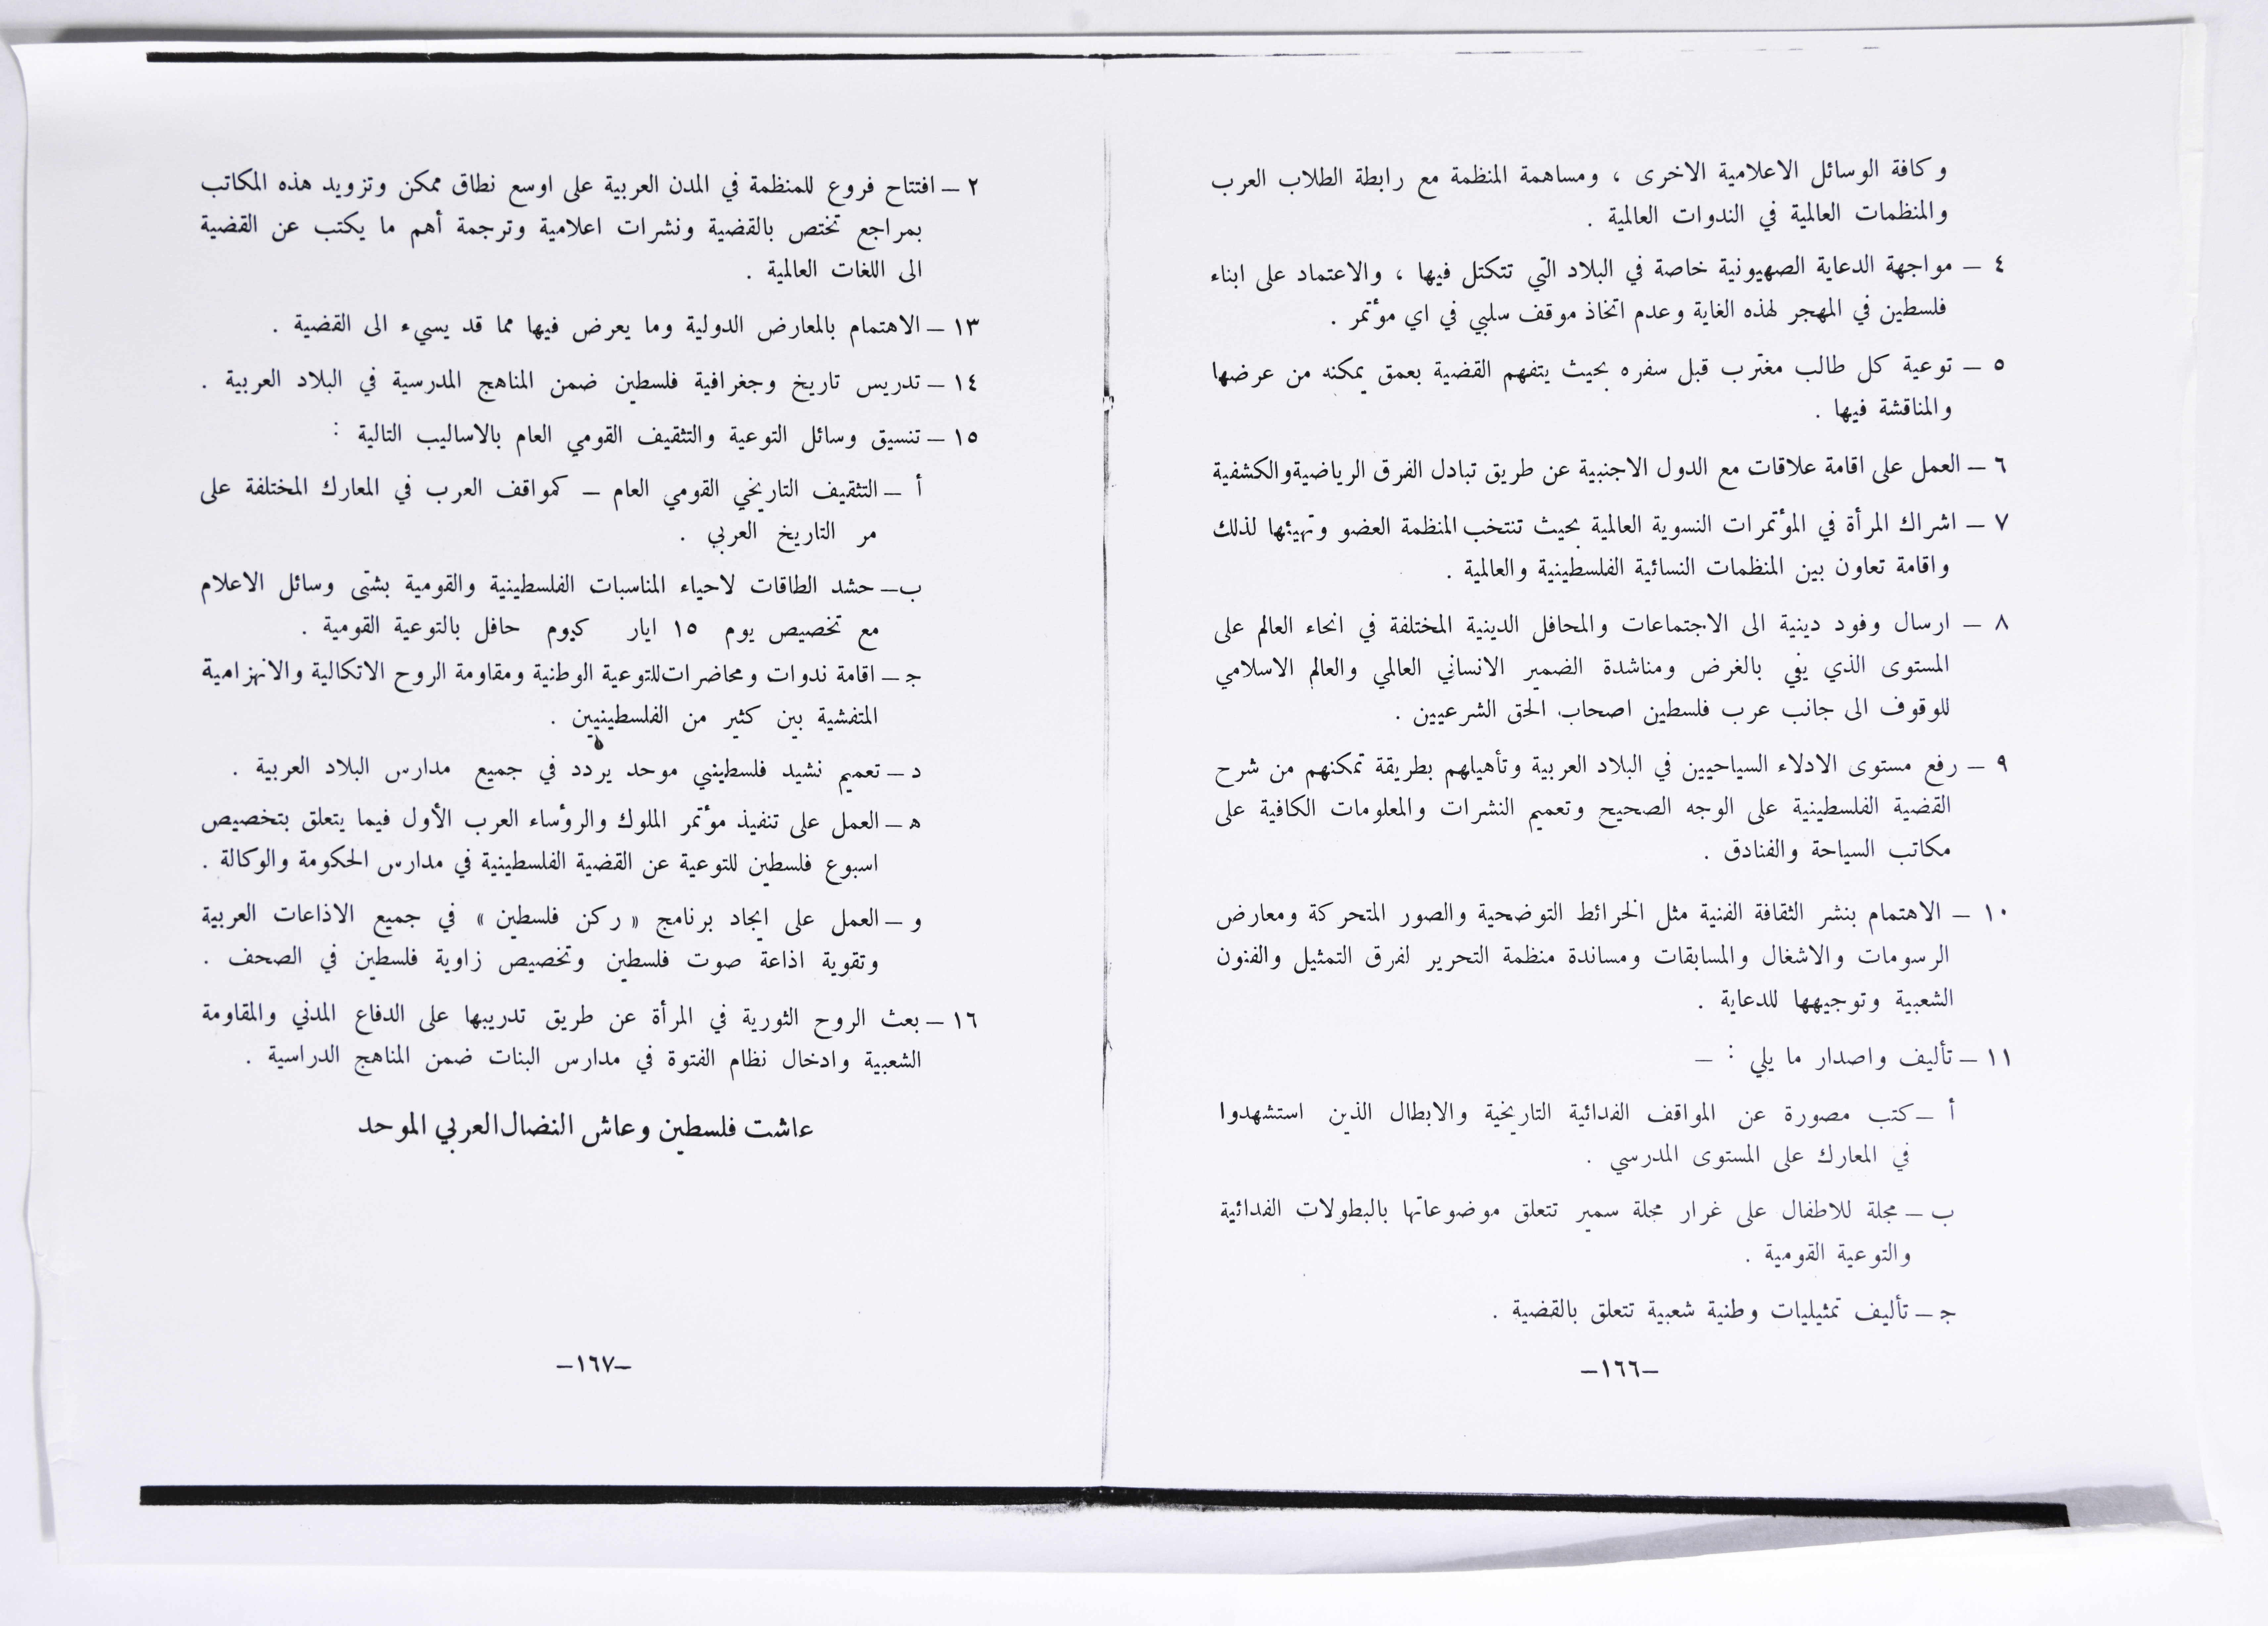 وكافة الوسائل الاعلامية الاخرى ، ومساهمة المنظمة مع رابطة الطلاب العرب
والمنظمات العالمية في الندوات العالمية .
٤ – مواجهة الدعاية الصهيونية خاصة في البلاد التي تتكتل فيها ، والاعتماد على ابناء
فلسطين في المهجر لهذه الغاية وعدم اتخاذ موقف سلبي في اي مؤتمر .
٥ – توعية كل طالب مغترب قبل سفره بحيث يتفهم القضية بعمق يمكنه من عرضها
والمناقشة فيها .
٦ – العمل على اقامة علاقات مع الدول الاجنبية عن طريق تبادل الفرق الرياضية والكشفية
٧ – اشراك المرأة في المؤتمرات النسوية العالمية بحيث تنتخب المنظمة العضو وتهيئها لذلك
واقامة تعاون بين المنظمات النسائية الفلسطينية والعالمية .
٨ – ارسال وفود دينية الى الاجتماعات والمحافل الدينية المختلفة في انحاء العالم على
المستوى الذي يفي بالغرض ومناشدة الضمير الانساني العالمي والعالم الاسلامي
للوقوف الى جانب عرب فلسطين اصحاب الحق الشرعيين .
٩ – رفع مستوى الادلاء السياحيين في البلاد العربية وتأهيلهم بطريقة تمكنهم من شرح
القضية الفلسطينية على الوجه الصحيح وتعميم النشرات والمعلومات الكافية على
مكاتب السياحة والفنادق .
١٠ – الاهتمام بنشر الثقافة الفنية مثل الخرائط التوضحية والصور المتحركة ومعارض
الرسومات والاشغال والمسابقات ومساندة منظمة التحرير لفرق التمثيل والفنون
الشعبية وتوجيهها للدعاية .
١١ – تأليف واصدار ما يلي : –
أ – كتب مصورة عن المواقف الفدائية التاريخية والابطال الذين استشهدوا
في المعارك على المستوى المدرسي .
ب – مجلة للاطفال على غرار مجلة سمير تتعلق موضوعاتها بالبطولات الفدائية
والتوعية القومية .
جـ – تأليف تمثيليات وطنية شعبية تتعلق بالقضية .
–١٦٦–
٢ – افتتاح فروع للمنظمة في المدن العربية على اوسع نطاق ممكن وتزويد هذه المكاتب
بمراجع تختص بالقضية ونشرات اعلامية وترجمة أهم ما يكتب عن القضية
الى اللغات العالمية .
١٣ – الاهتمام بالمعارض الدولية وما يعرض فيها مما قد يسيء الى القضية .
١٤ – تدريس تاريخ وجغرافية فلسطين ضمن المناهج المدرسية في البلاد العربية .
١٥ – تنسيق وسائل التوعية والتثقيف القومي العام بالاساليب التالية :
أ – التثقيف التاريخي القومي العام – كمواقف العرب في المعارك المختلفة على
مر التاريخ العربي .
ب – حشد الطاقات لاحياء المناسبات الفلسطينية والقومية بشتى وسائل الاعلام
مع تخصيص يوم ١٥ ايار كيوم حافل بالتوعية القومية .
جـ – اقامة ندوات ومحاضرات للتوعية الوطنية ومقاومة الروح الاتكالية والانهزامية
المتفشية بين كثير من الفلسطينيين .
د – تعميم نشيد فلسطيني موحد يردد في جميع مدارس البلاد العربية .
هـ – العمل على تنفيذ مؤتمر الملوك والرؤساء العرب الأول فيما يتعلق بتخصيص
اسبوع فلسطين للتوعية عن القضية الفلسطينية في مدارس الحكومة والوكالة .
و – العمل على ايجاد برنامج « ركن فلسطين » في جميع الاذاعات العربية
وتقوية اذاعة صوت فلسطين وتخصيص زاوية فلسطين في الصحف .
١٦ – بعث الروح الثورية في المرأة عن طريق تدريبها على الدفاع المدني والمقاومة
الشعبية وادخال نظام الفتوة في مدارس البنات ضمن المناهج الدراسية .
عاشت فلسطين وعاش النضال العربي الموحد
–١٦٧–